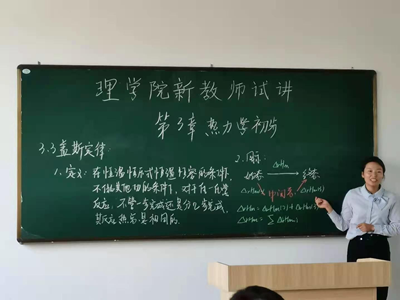 理学院新教师试讲
第3章 热力学初步
3.3 盖斯定律
1. 定义: 在恒温恒压或恒温恒容的条件下,
不做其他功的条件下, 对于任一化学
反应, 不管一步完成还是分几步完成,
其反应热总是相同的.
2. 图示:
始态 ΔrHm 终态
中间态
ΔrHm = ΔrHm(1) + ΔrHm(2)
ΔrHm = ∑ ΔrHm,i